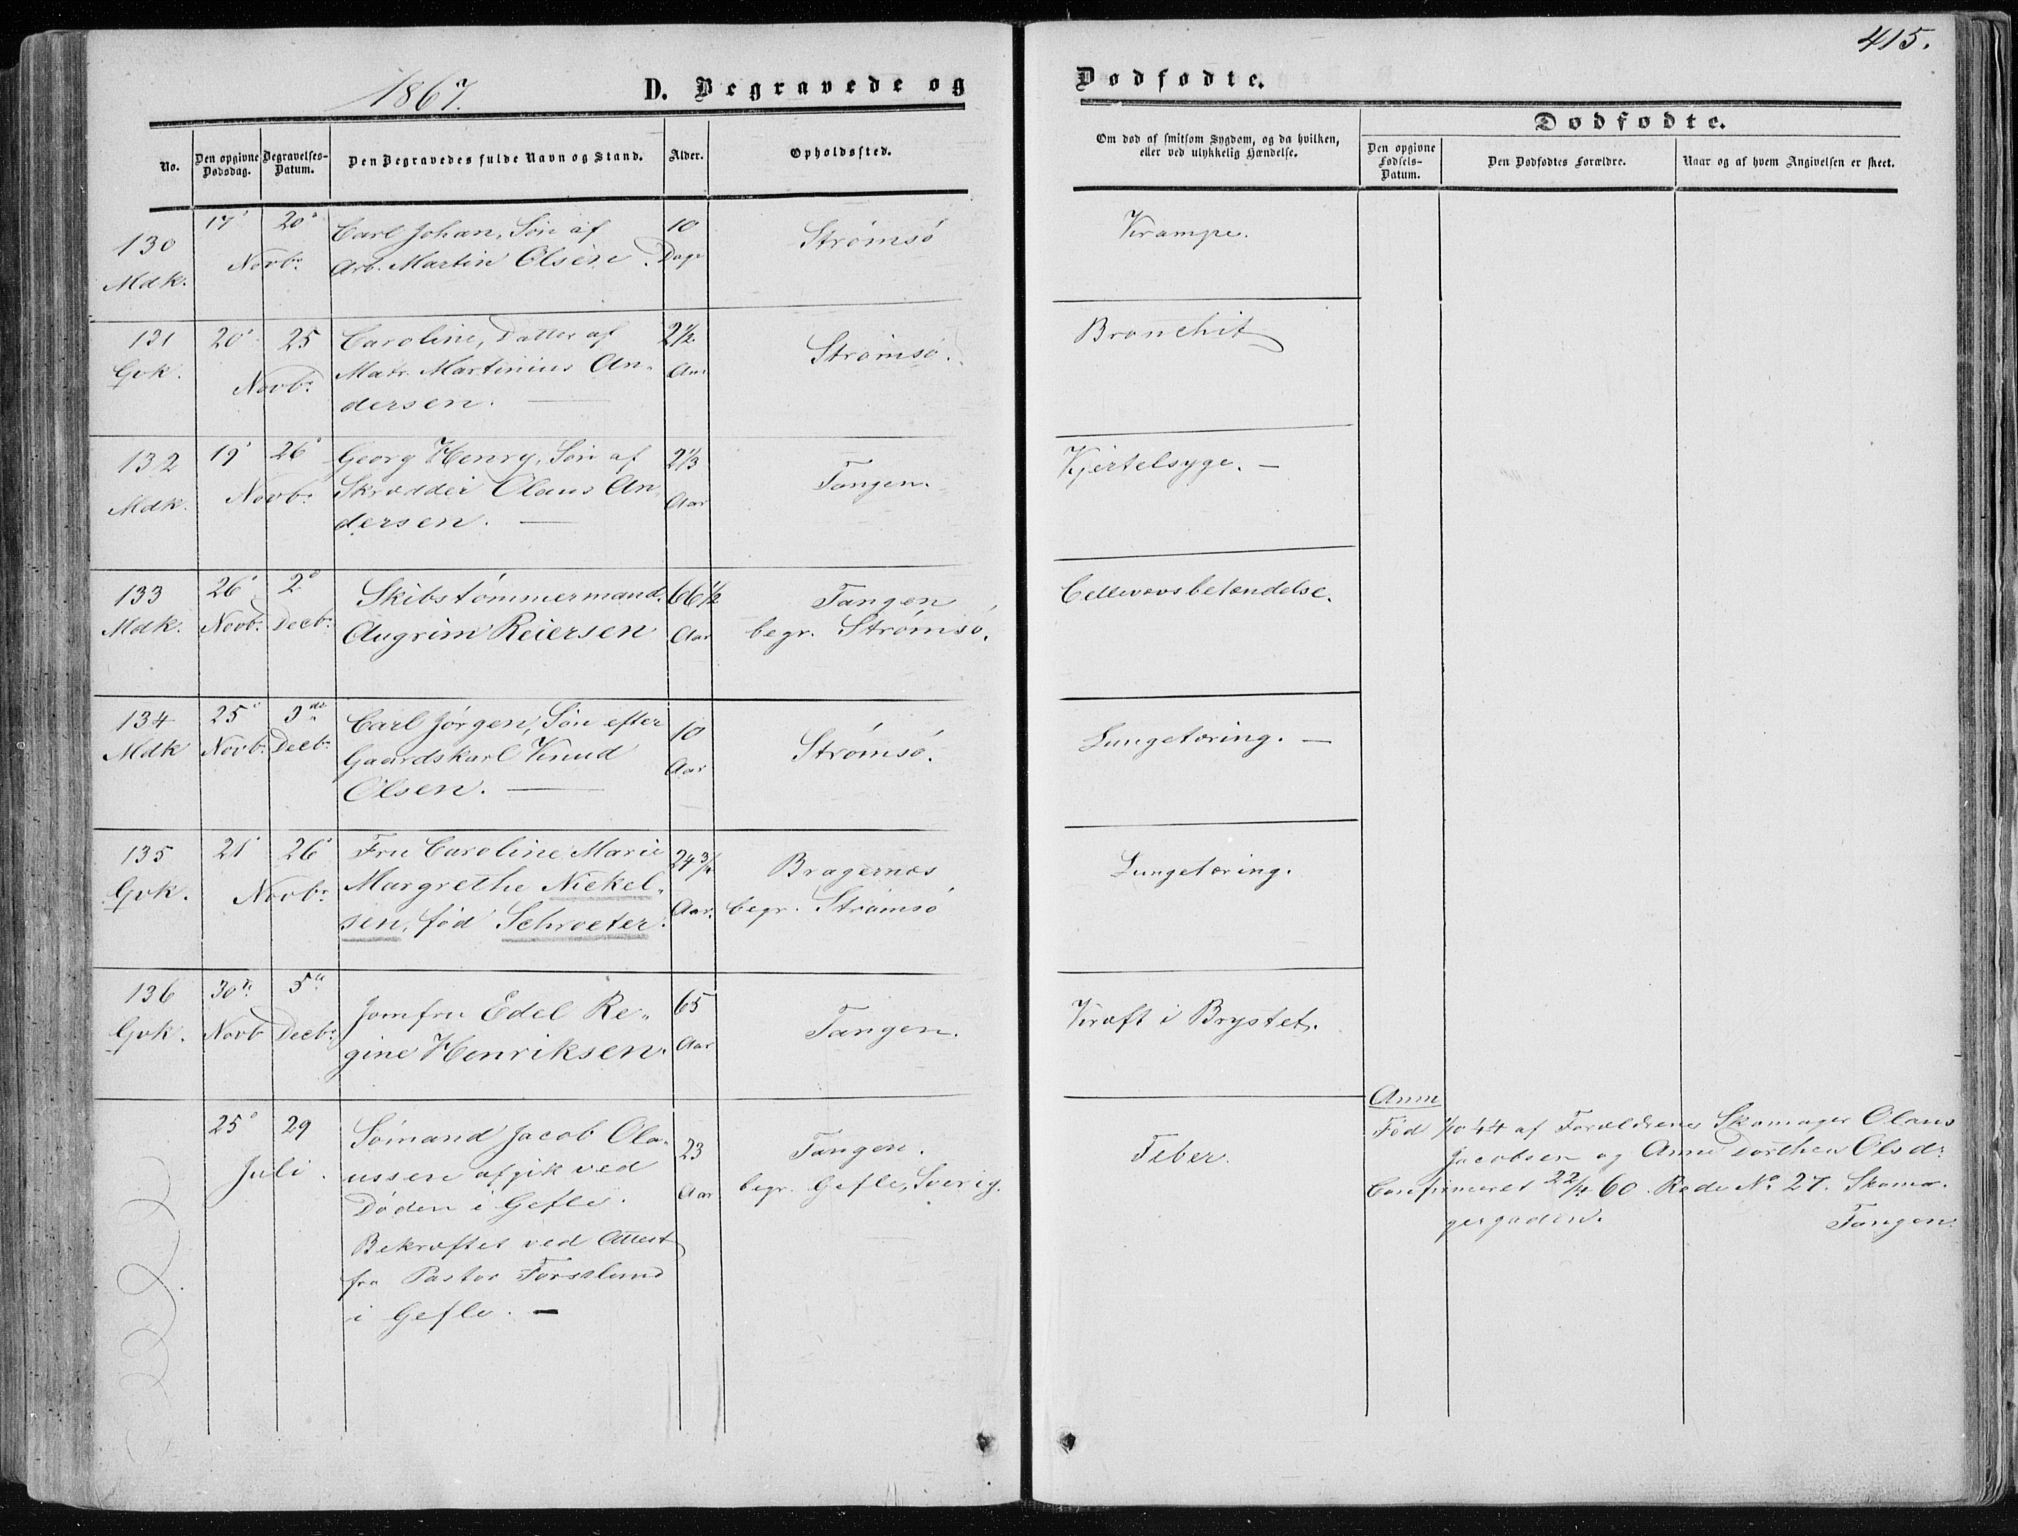 415.
1867.
D. Begravede og
Dødfødte.
No.
Den opgivne Dødsdag.
Begravelses-Datum.
Den Begravedes fulde Navn og Stand.
Alder.
Opholdssted.
Om død af smitsom Sygdom, og da hvilken,
eller ved ulykkelig Hændelse.
Dødfødte.
Den opgivne Fødsels-Datum.
Den Dødfødtes Forældre.
Naar og af hvem Angivelsen er skeet.
130 17' 20' Carl Johan, Søn af 10 Strømsø Krampe.
Mdk. Novbr. Arb. Martin Olsen. Dage
131 20' 25 Caroline, Datter af 2½ Strømsø. Bronchit
Qvk. Novbr. Matr. Martinius An-
dersen. Aar
132 19' 26' Georg Henry, Søn af 2⅓ Tangen. Kjertelsyge.
Mdk. Novbr. Skrædder Olaus An-
dersen. Aar
133 26' 2' Skibstømmermand 66½ Tangen Cellevævsbetændelse.
Mdk. Novbr. Decbr. Augrim Reiersen Aar begr. Strømsø.
134 25' 3die Carl Jørgen, Søn efter 10 Strømsø. Lungetæring.
Mdk Novbr. Decbr. Gaardskarl Knud Aar
Olsen.
135 21' 26' Fru Caroline Marie 24¾ Bragernæs Lungetæring.
Qvk. Novbr. Margrethe Nickel-
sen, fød Schroeter. Aar. begr. Strømsø
136 30te 5te Jomfru Edel Re- 65 Tangen. Kræft i Brystet.
Qvk. Novb Decbr. gine Henriksen. Aar
25' 29 Sømand Jacob Ola- 23 Tangen. Feber.
Juli. ussen afgik ved Aar begr. Gefle, Sverig.
Døden i Gefle.
Bekræftet ved Attest
fra Pastor Forsslund
i Gefle.
Anm
Fød 44 af Forældrene Skomager Olaus
Jacobsen og Anne Dorthea Olsdr.
Confirmeret 22/4 60. Rode No. 27. Skoma-
gergaden. Tangen.